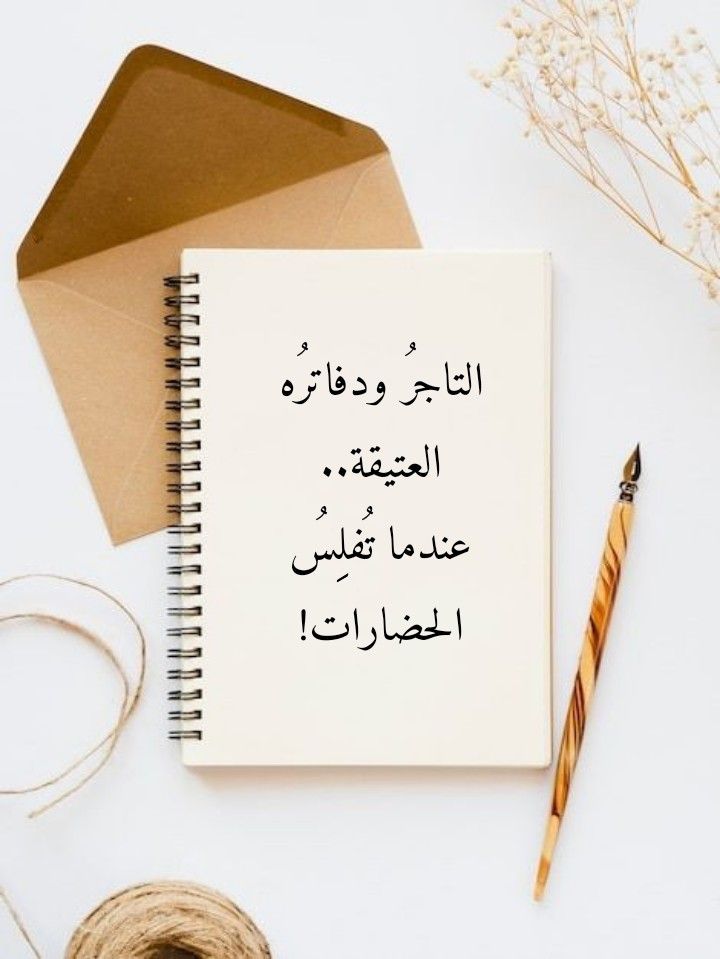 التاجرُ ودفاترُه
العتيقة..
عندما تُفلِسُ
الحضارات!